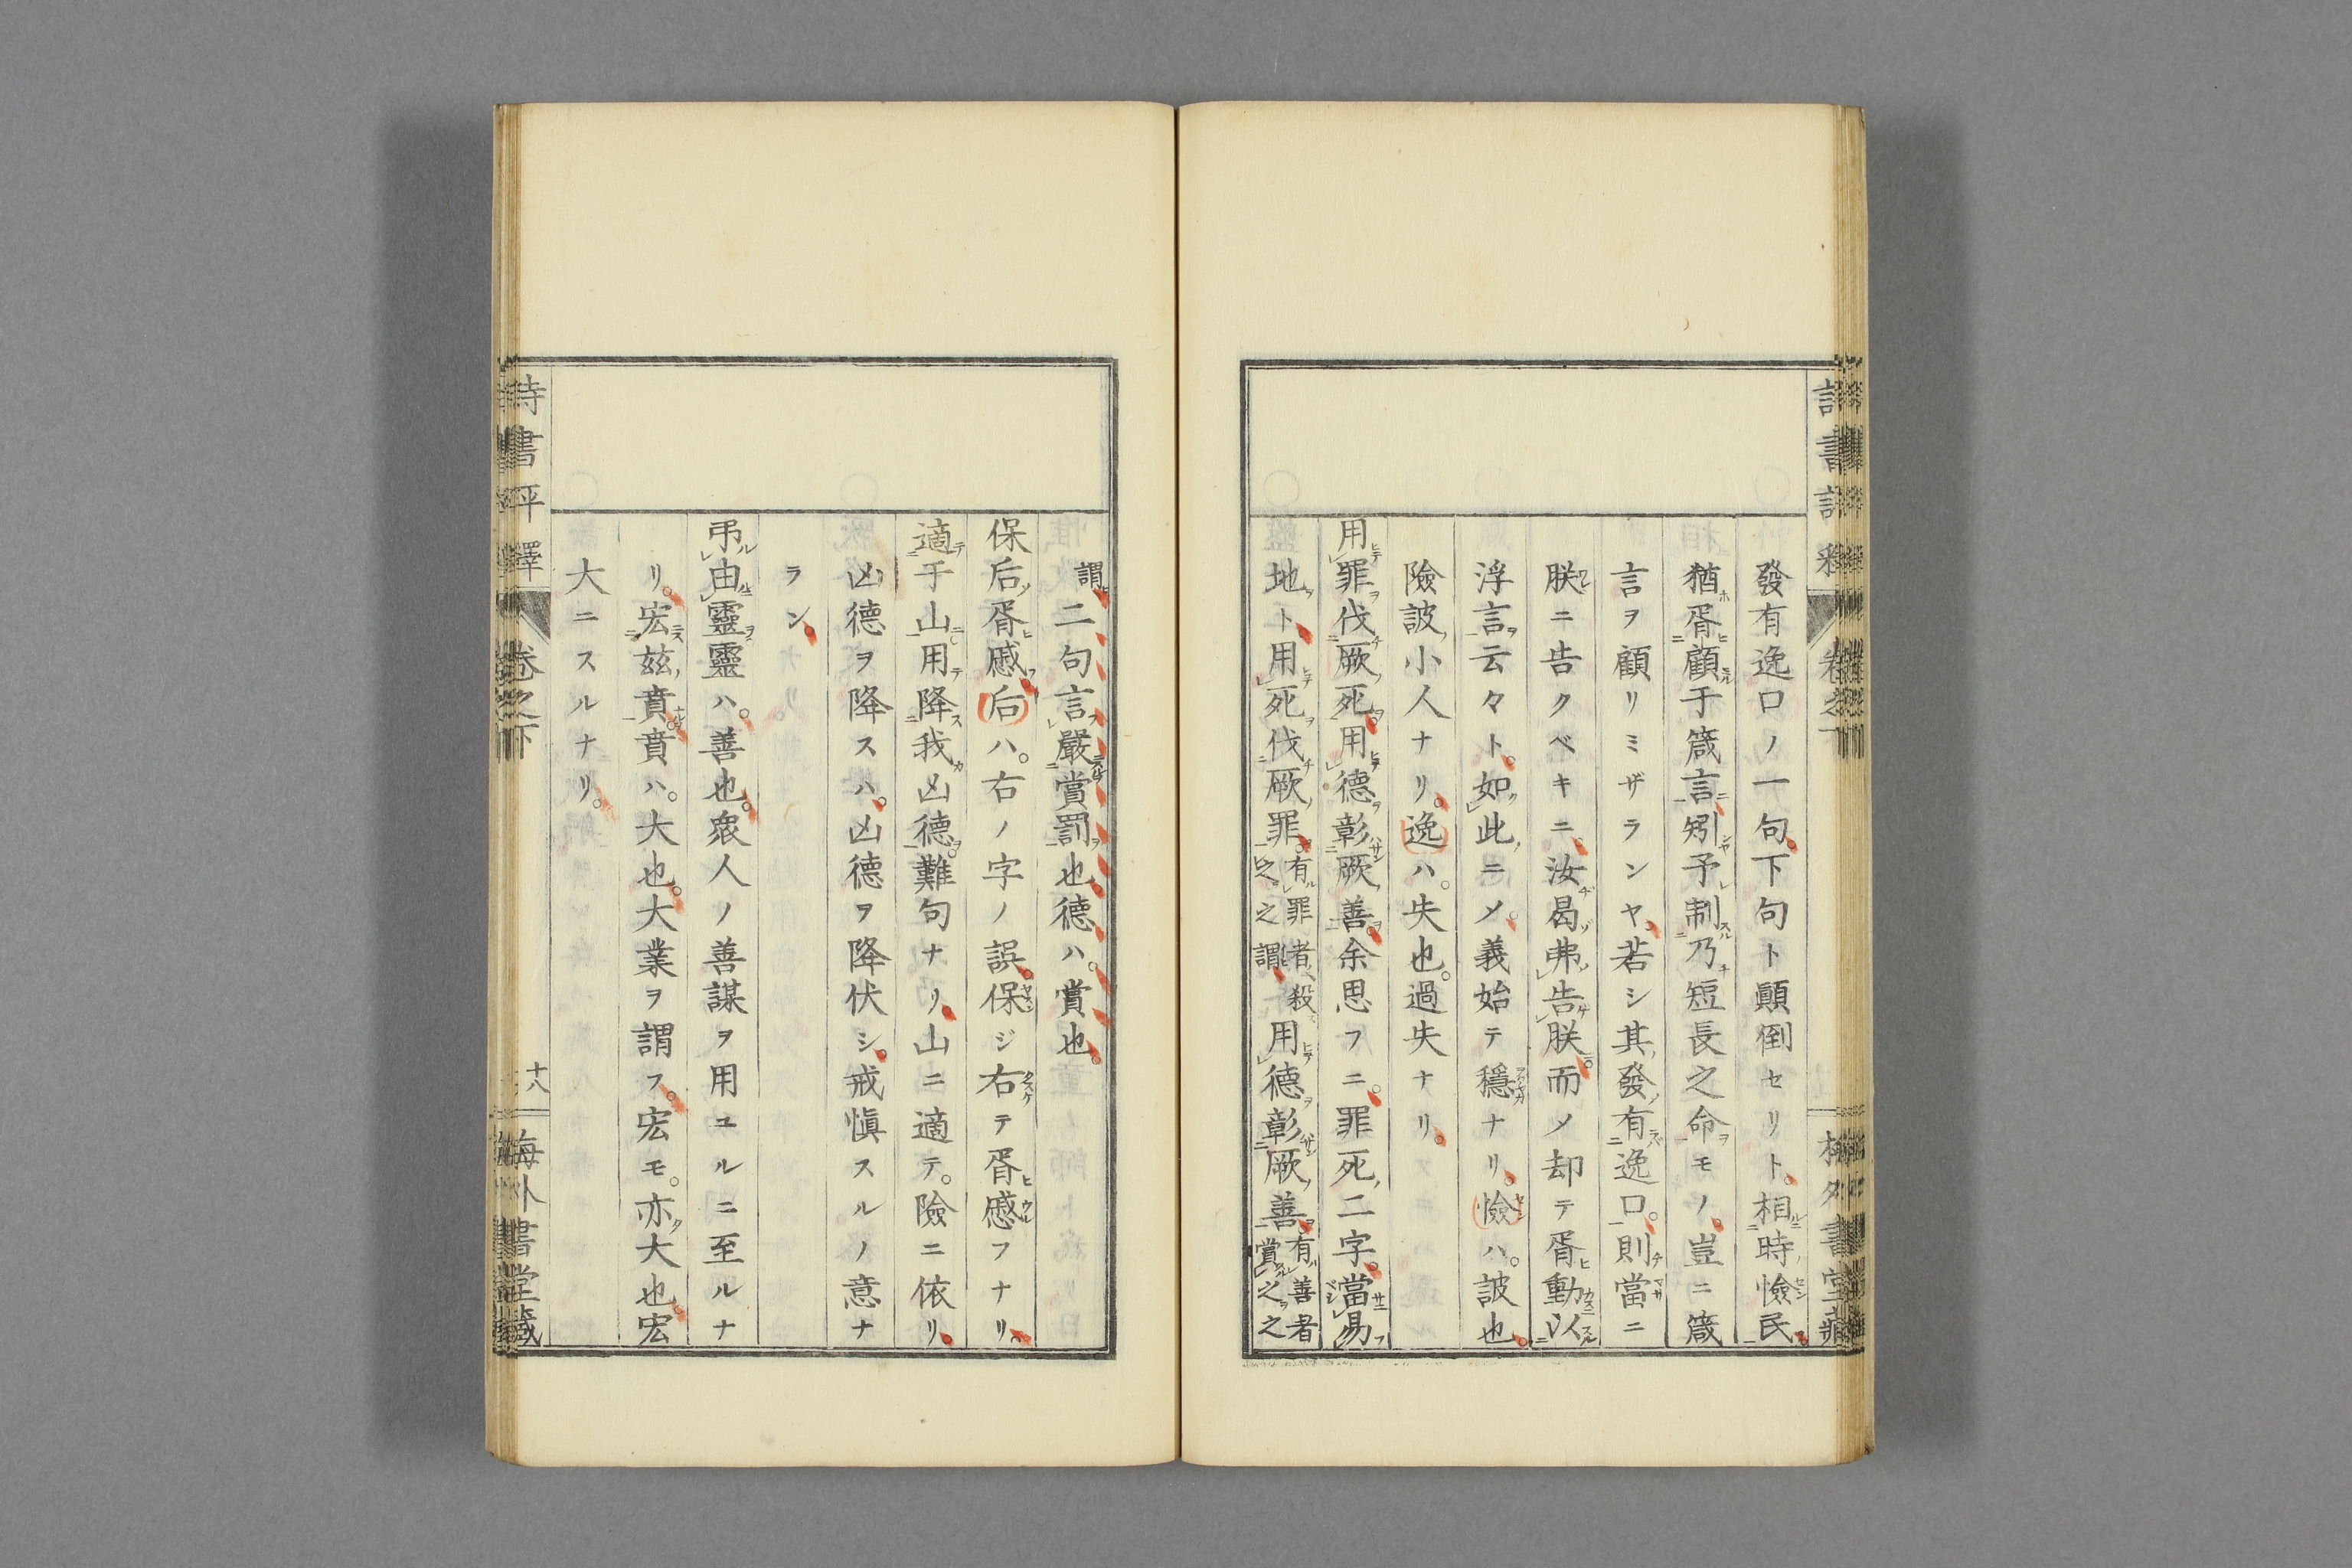 發有逸口ノ一句。下句ト顚倒セリト。相時憸民。
猶胥顧于箴言。矧予制乃短長之命モノ。豈ニ箴
言ヲ顧リミザランヤ。若シ其發有逸口。則當ニ
朕ニ告クベキニ。汝曷弗告朕。而メ却テ胥動以
浮言云々ト。如此ニメ。義始テ穩ナリ。憸ハ。詖也。
險詖小人ナリ。逸ハ。失也。過失ナリ。
用罪伐厥死。用德彰厥善。余思フニ。罪死二字。當易
地ト。用死伐厥罪。有罪者殺之之謂用德彰厥善。有善者賞之之
謂二句言嚴賞罰也。德ハ。賞也。
保后胥慼。后ハ。右ノ字ノ誤。保ジ右テ胥慼フナリ。
適于山。用降我凶德。難句ナリ。山ニ適テ。險ニ依リ。
凶德ヲ降スハ。凶德ヲ降伏シ。戒愼スルノ意ナ
ラン。
弔由靈靈ハ。善也。衆人ノ善謀ヲ用ユルニ至ルナ
リ。宏玆賁。賁ハ。大也。大業ヲ謂フ。宏モ。亦大也。宏
大ニスルナリ。
詩書評釋 卷之下 十八 梅外書堂藏